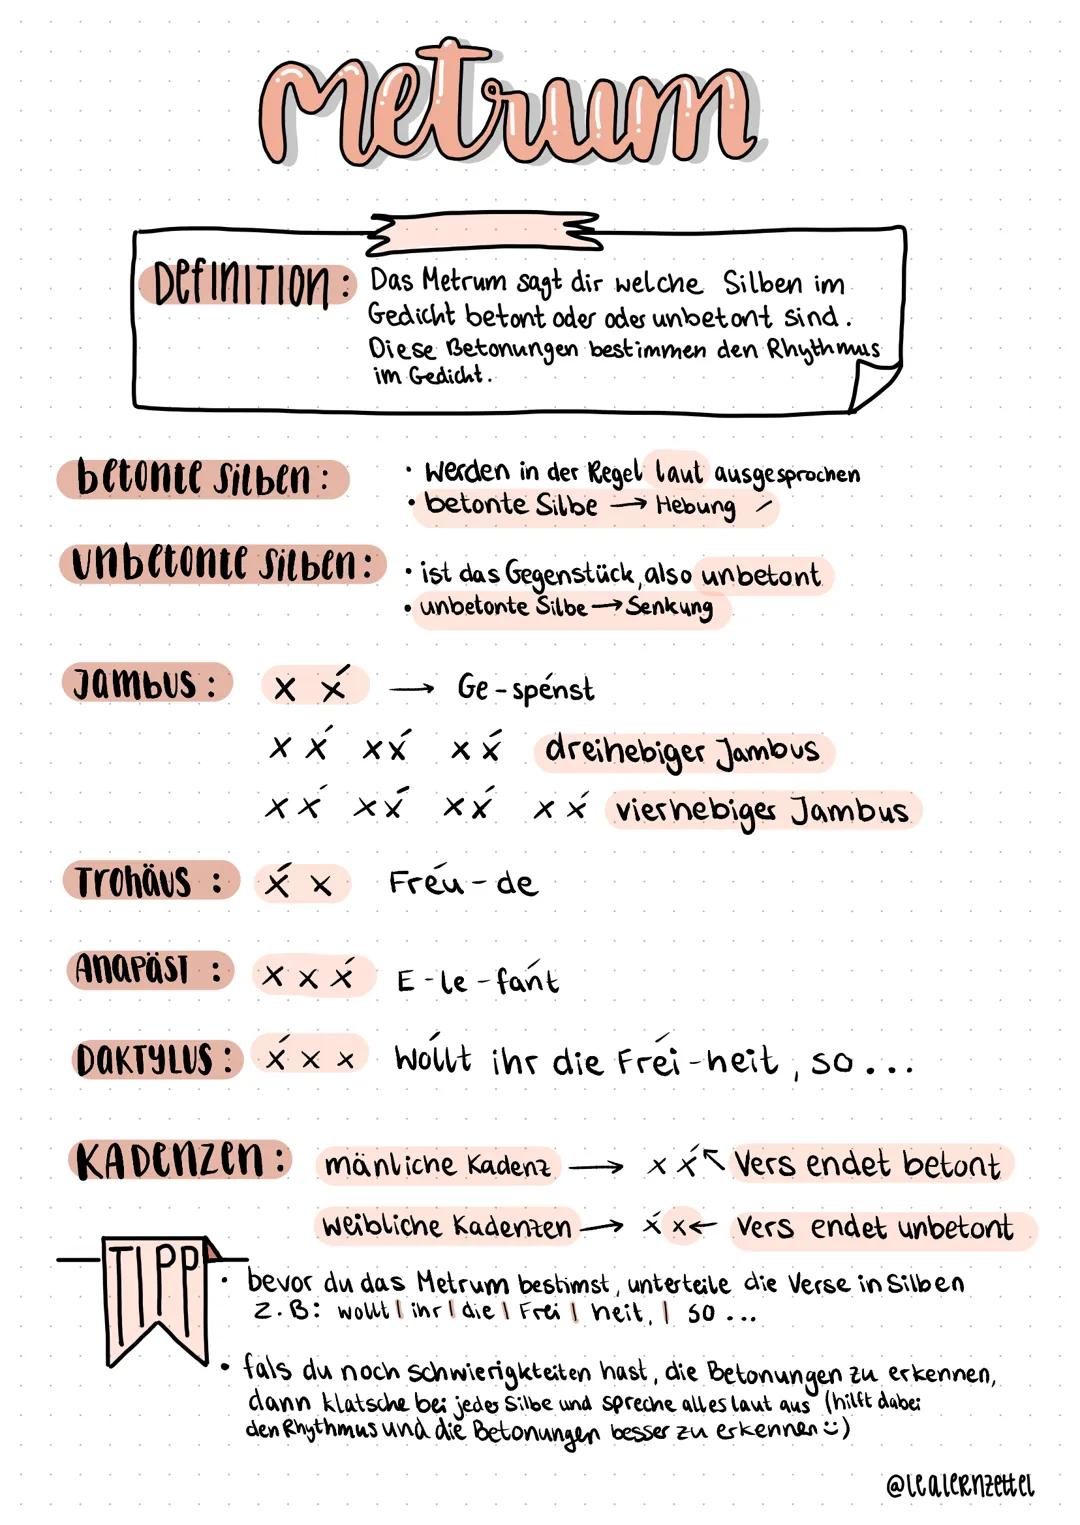 Metrum
Definition: Das Metrum sagt dir welche Silben im
Gedicht betont oder oder unbetont sind.
Diese Betonungen bestimmen den Rhythmus
im Gedicht.
betonte Silben: • werden in der Regel laut ausgesprochen
• betonte Silbe → Hebung ⟋
unbetonte Silben: • ist das Gegenstück, also unbetont
• unbetonte Silbe → Senkung
Jambus: x x́ → Ge-spénst
x x́ x x́ x x́ dreihebiger Jambus
x x́ x x́ x x́ x x́ vierhebiger Jambus
Trohäus: x́ x Fréu-de
Anapäst: x x x́ E-le-fánt
Daktylus: x́ x x Wóllt ihr die Fréi-heit, so...
Kadenzen: mänliche Kadenz → x x́ ↖ Vers endet betont
weibliche Kadenzen → x́ x ← Vers endet unbetont
TIPP
• bevor du das Metrum bestimst, unterteile die Verse in Silben
z.B: wollt | ihr | die | Frei | heit, | so ...
• fals du noch schwierigkteiten hast, die Betonungen zu erkennen,
dann klatsche bei jeder Silbe und spreche alles laut aus (hilft dabei
den Rhythmus und die Betonungen besser zu erkennen :))
@lealernzettel